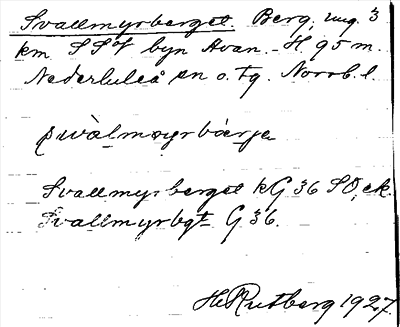 Svallmyrberget. Berg, ung. 3
km SSV byn Avan. - H. 95 m.
Nederluleå sn o. tg. Norrb. l.
svàlmyrbàrje
Svallmyrberget kG 36 SO, ek.
Svallmyrbgt G 36.
H. Rutberg 1927.